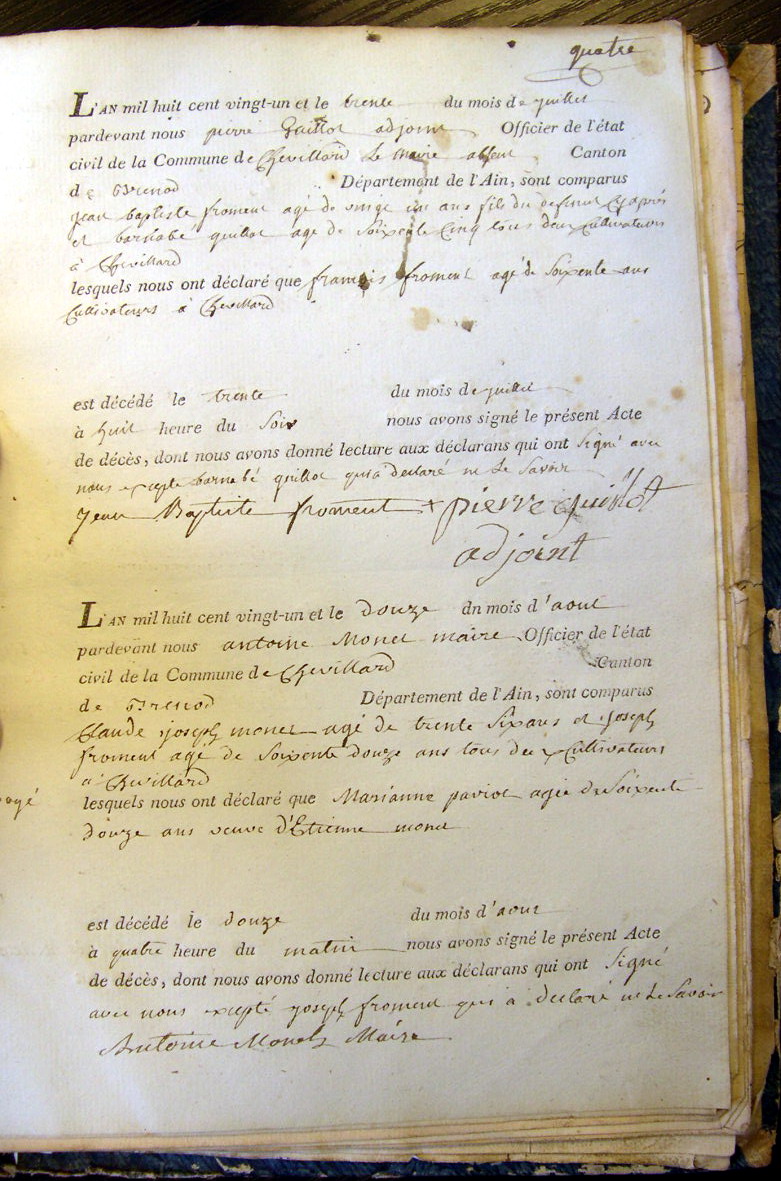 quatre
L'AN mil huit cent vingt-un et le trente du mois de juillet
pardevant nous pierre Guillot adjoint Officier de l'état
civil de la Commune de Chevillard Le maire absent Canton
de Brenod Département de l'Ain, sont comparus
jean baptiste froment agé de vingt un ans fils du defunt Cy après
et barnabé guillot agé de Soixente Cinq tous deux Cultivateurs
à Chevillard
lesquels nous ont déclaré que françois froment agé de Soixente ans
Cultivateurs à Chevillard
est décédé le trente du mois de juillet
à huit heure du Soir nous avons signé le présent Acte
de décès, dont nous avons donné lecture aux déclarans qui ont signé avec
nous excepte barnabé guillot qui a declaré ne Le Savoir
Jean Baptiste froment + pierre guillot
adjoint
L'AN mil huit cent vingt-un et le douze dn mois d'aout
pardevant nous antoine Monet maire Officier de l'état
civil de la Commune de Chevillard Canton
de Brenod Département de l'Ain, sont comparus
Claude joseph monet agé de trente Six ans et joseph
froment agé de Soixente douze ans tous deux Cultivateurs
a Chevillard
ogé
lesquels nous ont déclaré que Marianne paviot agée de Soixente
douze ans veuve d'Etienne monet
est décédé le douze du mois d'aout
à quatre heure du matin nous avons signé le présent Acte
de décès, dont nous avons donné lecture aux déclarans qui ont Signé
avec nous excepté joseph froment qui a declaré ne Le Savoir
Antoine Monet Maire